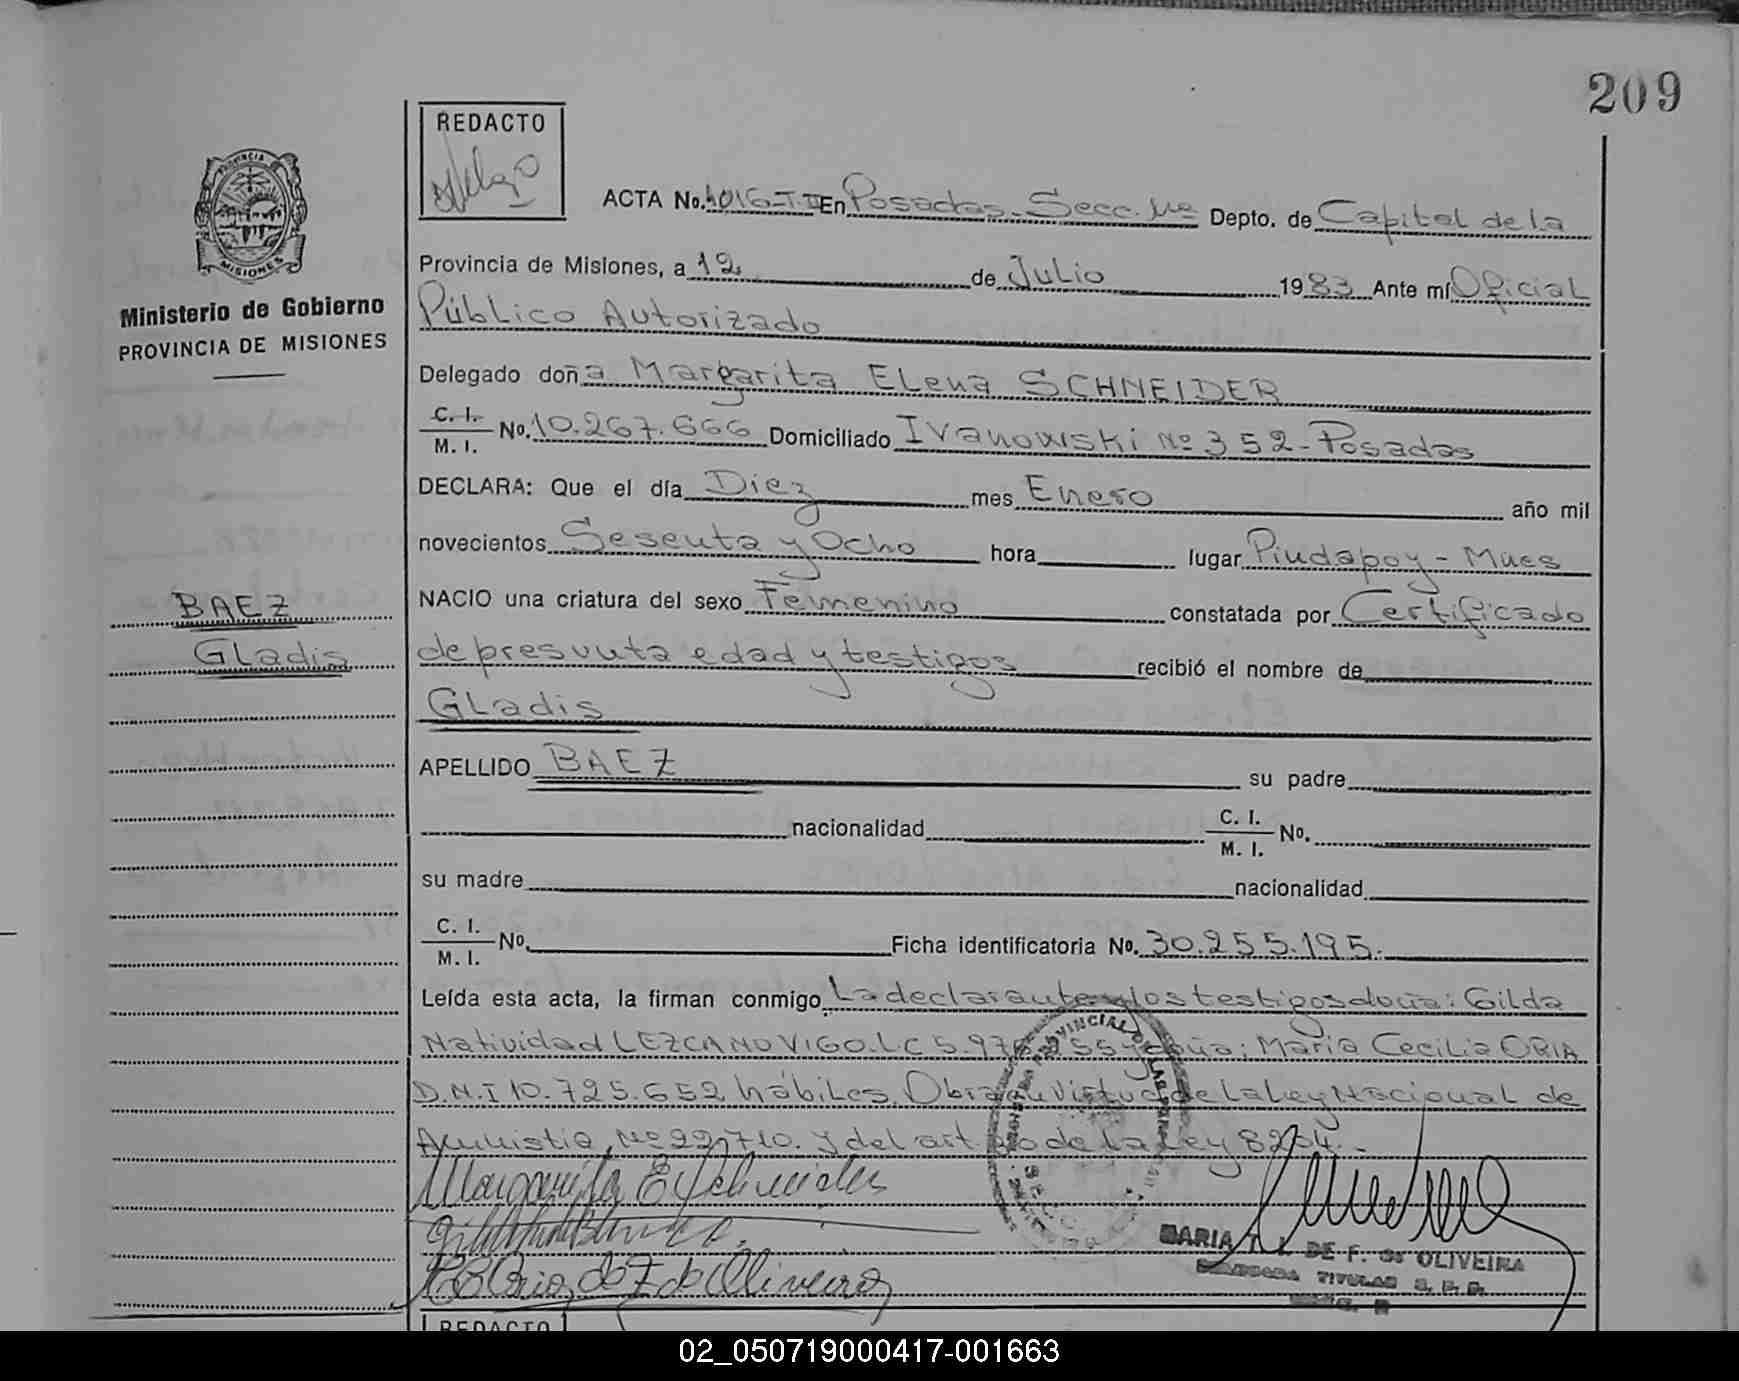 209
REDACTO
ACTA No. 1016-T.II En Posadas-Secc. 1ra Depto. de Capital de la
PROVINCIA
MISIONES
Provincia de Misiones, a 12 de Julio 1983 Ante mí Oficial
Ministerio de Gobierno
PROVINCIA DE MISIONES
Público Autorizado
Delegado doña Margarita ELena SCHNEIDER
C. I.
M. I. No. 10.267.666 Domiciliado Ivanowski Nº 352-Posadas
DECLARA: Que el día Diez mes Enero año mil
novecientos Sesenta y Ocho hora lugar Pindapoy-Mnes
BAEZ
NACIO una criatura del sexo Femenino constatada por Certificado
GLadis
de presunta edad y testigos recibió el nombre de
GLadis
APELLIDO BAEZ su padre
nacionalidad C. I.
M. I. No.
su madre nacionalidad
C. I.
M. I. No. Ficha identificatoria No. 30.255.195.
Leída esta acta, la firman conmigo La declarante y los testigos doña: Gilda
Natividad LEZCANO VIGO.L.C 5.97 55 y doña: Maria Cecilia ORIA
D.N.I 10.725.652 hábiles. Obra en virtud de La Ley Nacional de
Amnistia, Nº 22.710. y del art. de La Ley 8204.-
Margarita E Schneider
de Oliveira
MARIA DE F. de OLIVEIRA
TITULAR
REDACTO
02_050719000417-001663